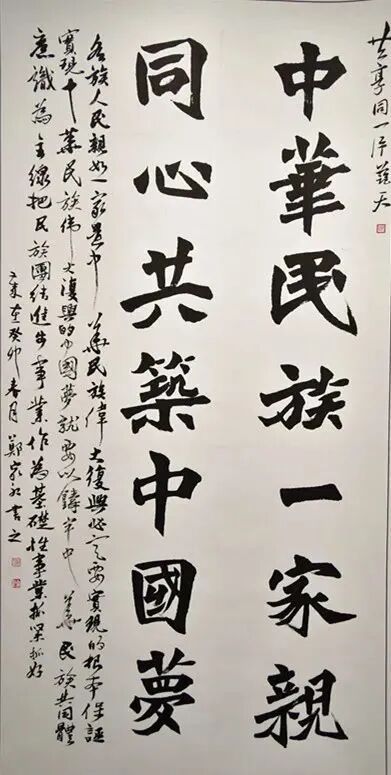 共享同一片藍天
中華民族一家親
同心共築中國夢
各族人民親如一家是中華民族偉大復興必定要實現的根本保証
實現中華民族偉大復興的中國夢就要以鑄牢中華民族共同體
意識為主線把民族團結進步事業作為基礎性事業抓緊抓好
癸卯春月鄭家書之